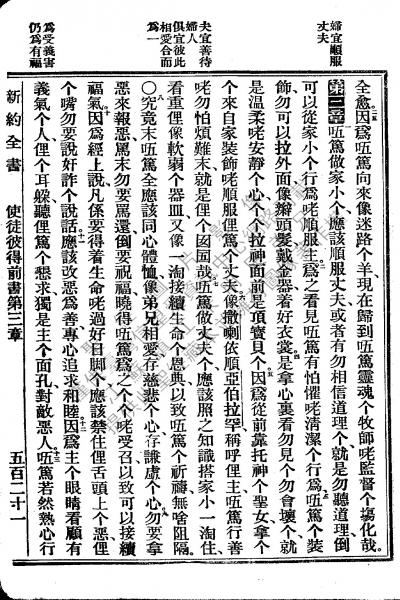 婦宜順服
丈夫
夫宜善待
婦人
俱宜彼此
相愛合而
為一
為受義害
仍為有福
全愈因為伍篤向來像迷路个羊現在歸到伍篤靈魂个牧師咾監督个塲化哉。
第三章伍篤做家小个應該順服丈夫或者有勿相信道理个就是勿聽道理倒
可以從家小个行為咾順服主為之看見伍篤有怕懼咾清潔个行為伍篤个裝
飾勿可以拉外面像辮頭髮戴金器着好衣裳是拿心裏看勿見个勿會壞个就
是溫柔咾安靜个心个个拉神面前是頂寶貝个因為從前靠托神个聖女拿个
个來自家裝飾咾順服俚篤个丈夫像撒喇依順亞伯拉罕稱呼俚主伍篤行善
咾勿怕煩難末就是俚个囡囝哉伍篤做丈夫个應該照之知識搭家小一淘住、
看重俚像軟弱个器皿又像一淘接續生命个恩典以致伍篤个祈禱無啥阻隔。
○究竟末伍篤全應該同心體恤像弟兄相愛存慈悲个心存謙虛个心勿要拿
惡來報惡罵末勿要罵還倒要祝福曉得伍篤為之个个咾受召以致可以接續
福氣因為經上說凡係要得着生命咾過好日脚个應該禁住俚舌頭上个惡俚
个嘴勿要說奸詐个說話應該改惡為善專心追求和睦因為主个眼睛看顧有
義氣个人俚个耳朶聽俚篤个懇求獨是主个面孔對敵惡人伍篤若然熱心行
新約全書 使徒彼得前書第三章 五百二十一